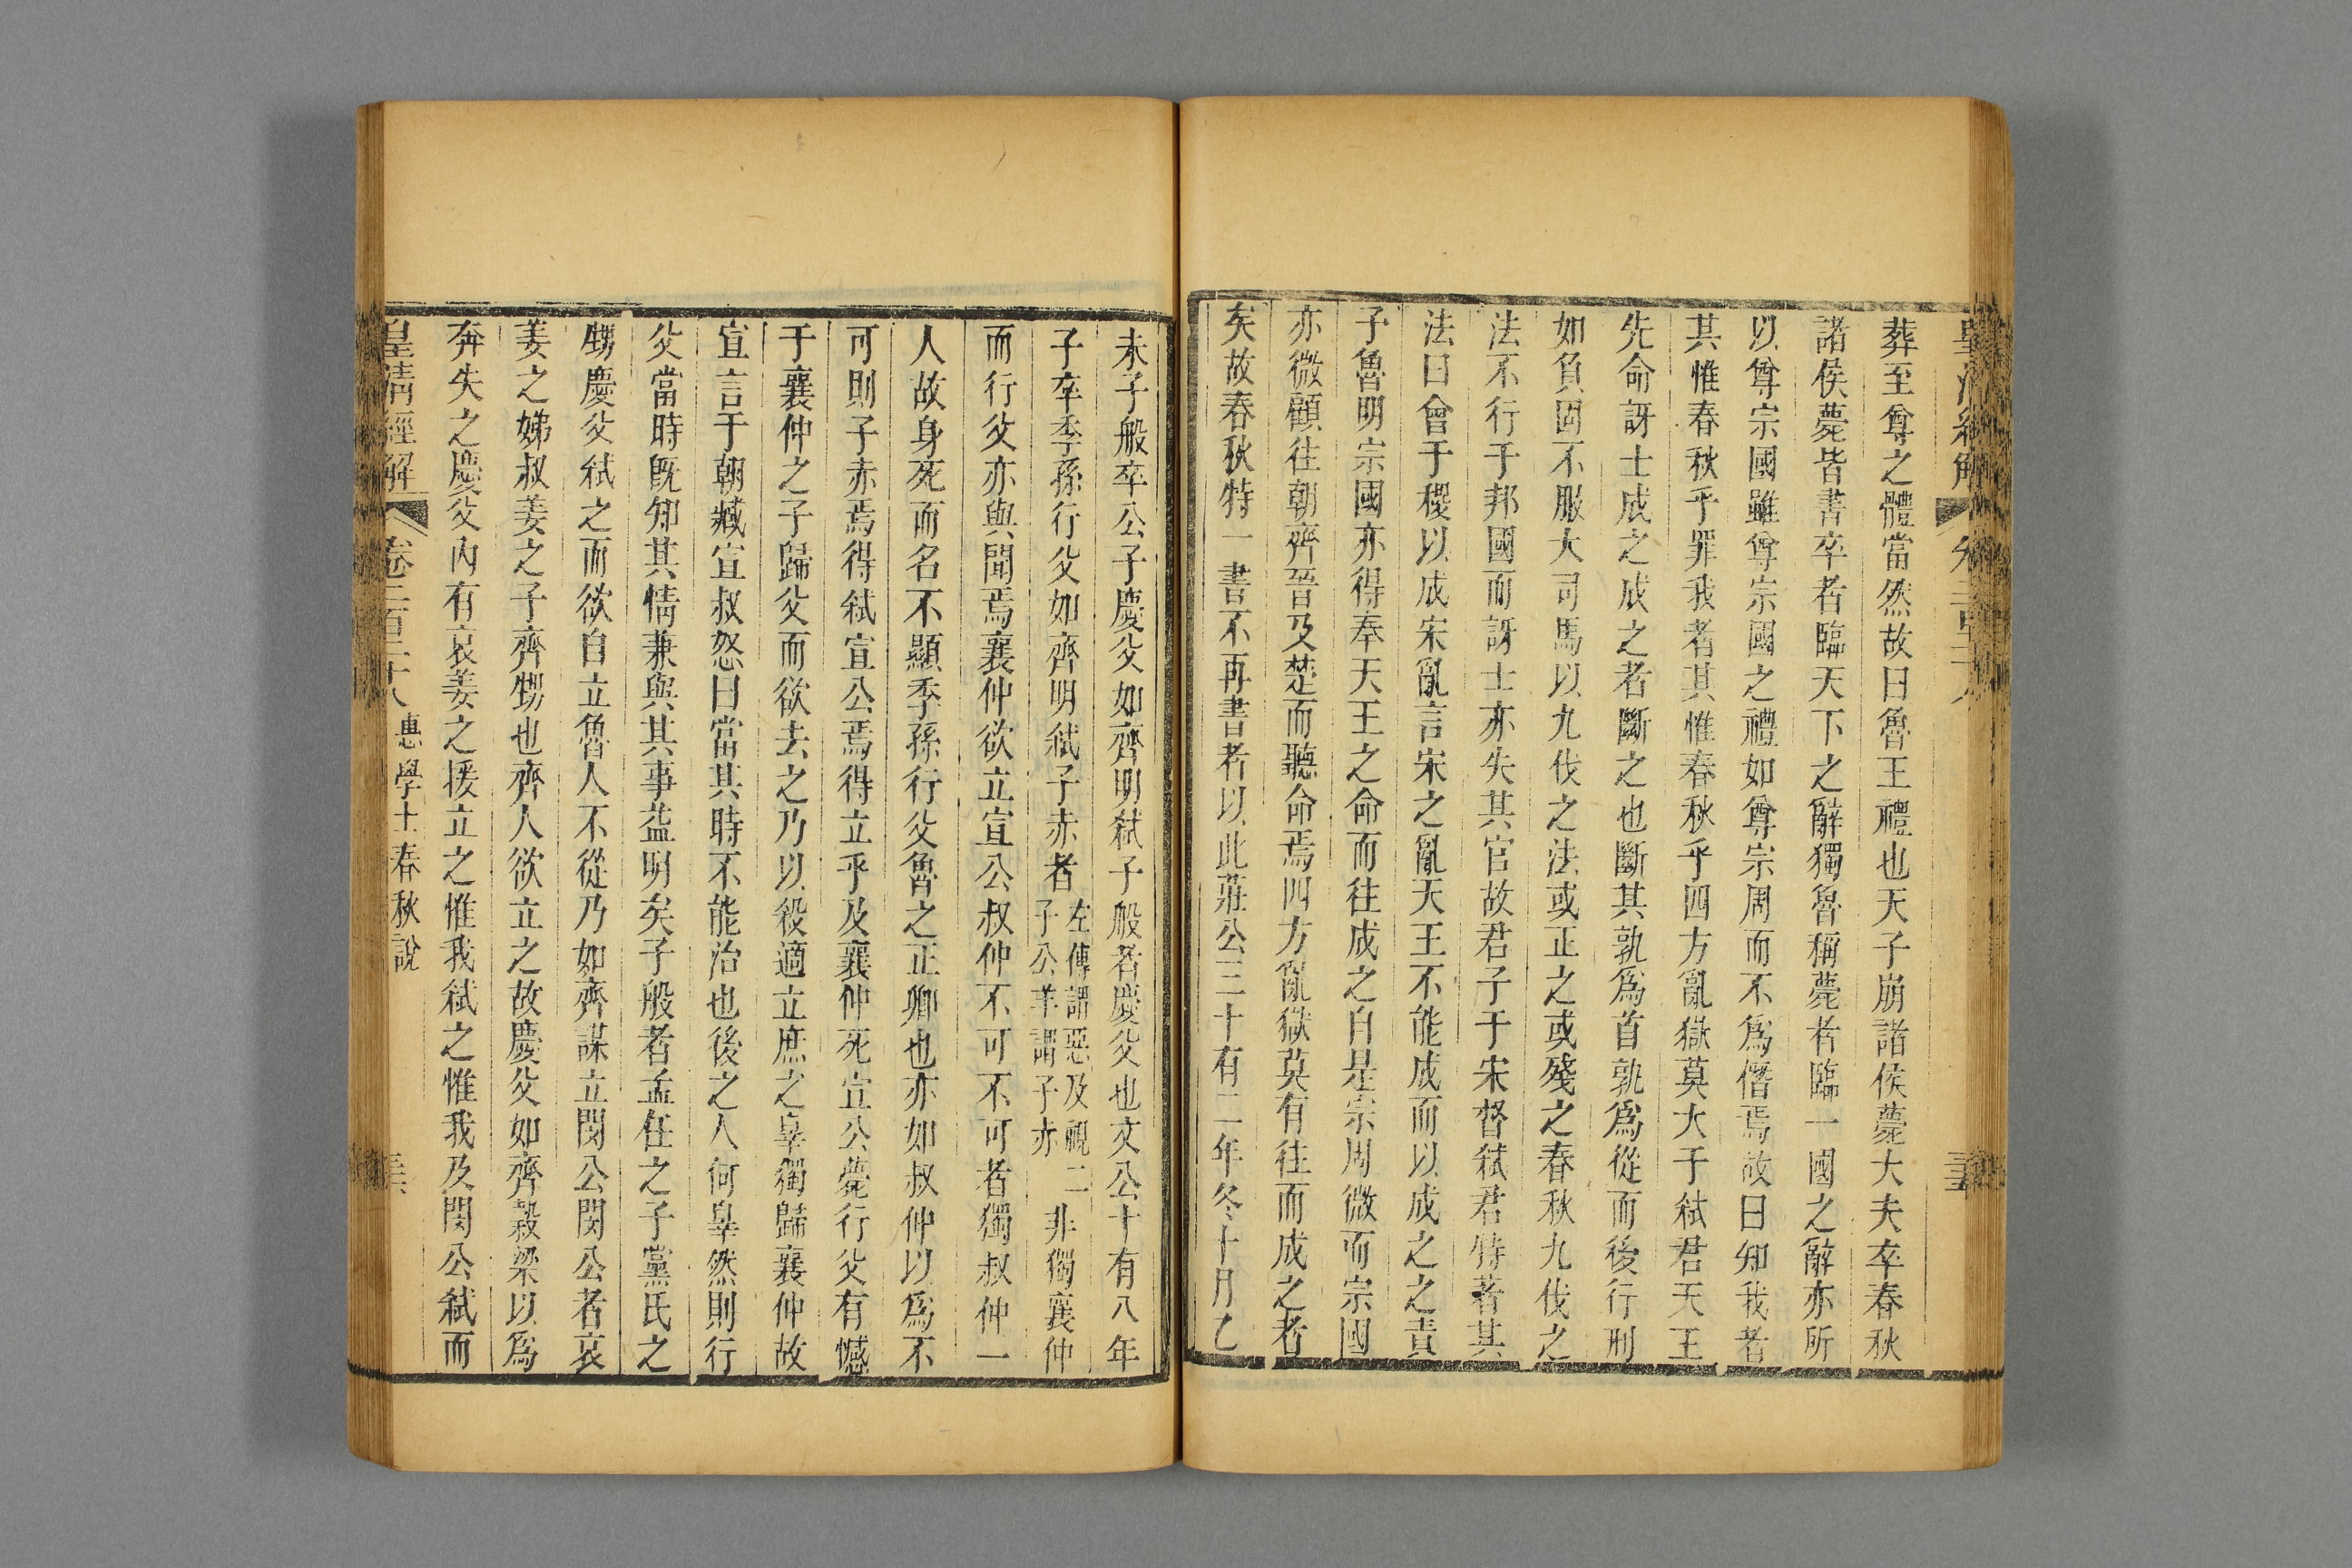 葬至尊之體當然故曰魯王禮也天子崩諸侯薨大夫卒春秋
諸侯薨皆書卒者臨天下之辭獨魯稱薨者臨一國之辭亦所
以尊宗國雖尊宗國之禮如尊宗周而不爲僭焉故曰知我者
其惟春秋乎罪我者其惟春秋乎四方亂獄莫大于弑君天王
先命訝士成之成之者斷之也斷其孰爲首孰爲從而後行刑
如負固不服大司馬以九伐之法或正之或殘之春秋九伐之
法不行于邦國而訝士亦失其官故君子于宋督弑君特著其
法曰會于稷以成宋亂言宋之亂天王不能成而以成之之責
予魯明宗國亦得奉天王之命而往成之自是宗周微而宗國
亦微顧往朝齊晉及楚而聽命焉四方亂獄莫有往而成之者
矣故春秋特一書不再書者以此莊公三十有二年冬十月乙
未子般卒公子慶父如齊明弑子般者慶父也文公十有八年
子卒季孫行父如齊明弑子赤者左傳謂惡及視二子公羊謂子赤非獨襄仲
而行父亦與聞焉襄仲欲立宣公叔仲不可不可者獨叔仲一
人故身死而名不顯季孫行父魯之正卿也亦如叔仲以爲不
可則子赤焉得弑宣公焉得立乎及襄仲死宣公薨行父有憾
于襄仲之子歸父而欲去之乃以殺適立庶之辠獨歸襄仲故
宣言于朝臧宣叔怒曰當其時不能治也後之人何辠然則行
父當時旣知其情兼與其事益明矣子般者孟任之子黨氏之
甥慶父弑之而欲自立魯人不從乃如齊謀立閔公閔公者哀
姜之娣叔姜之子齊甥也齊人欲立之故慶父如齊穀梁以爲
奔失之慶父內有哀姜之援立之惟我弑之惟我及閔公弑而
皇清經解 卷二百二十八 惠學士春秋說